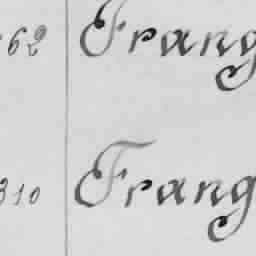 62 Frang
310 Frang